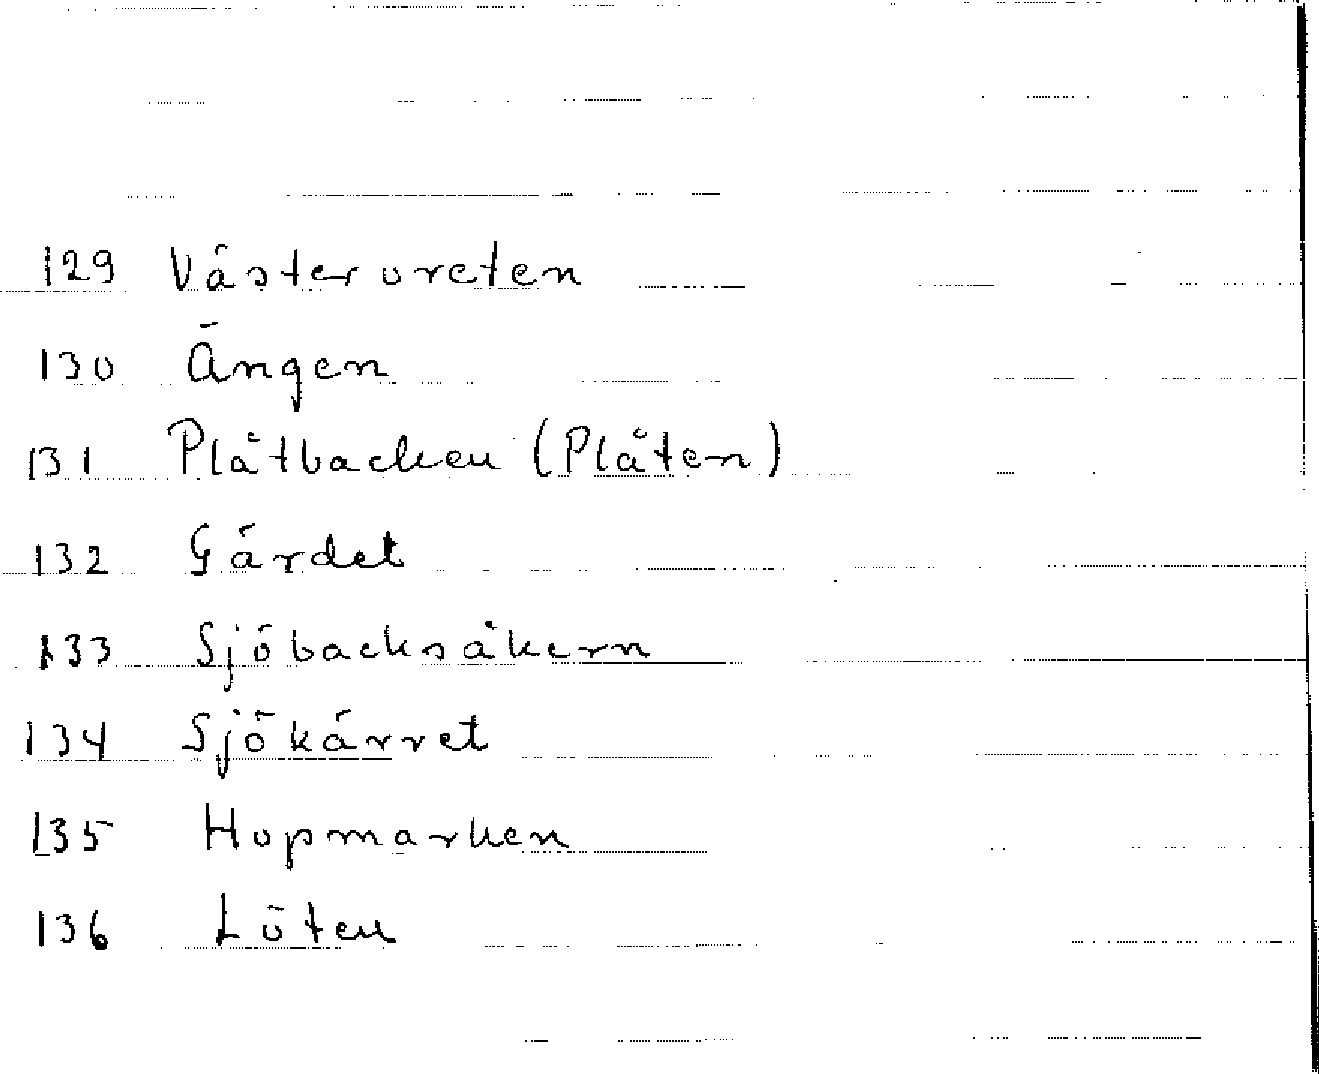 129 Väster vreten
130 Ängen
131 Plåtbacken (Plåten)
132 Gärdet
133 Sjöbacksåkern
134 Sjökärret
135 Hopmarken
136 Löten